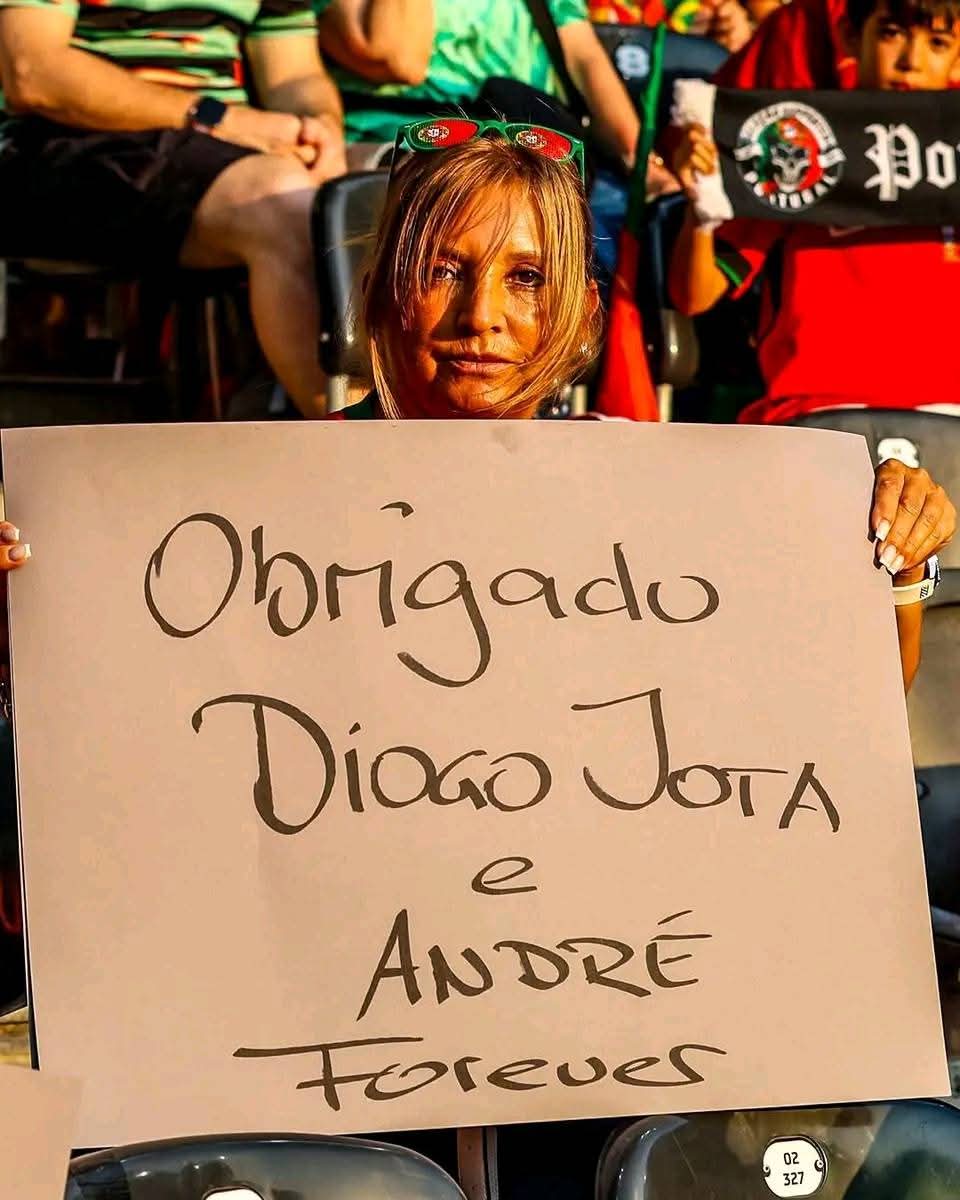 PORTUGAL
Po
Obrigado
Diogo Jota
e
André
Forever
02
327